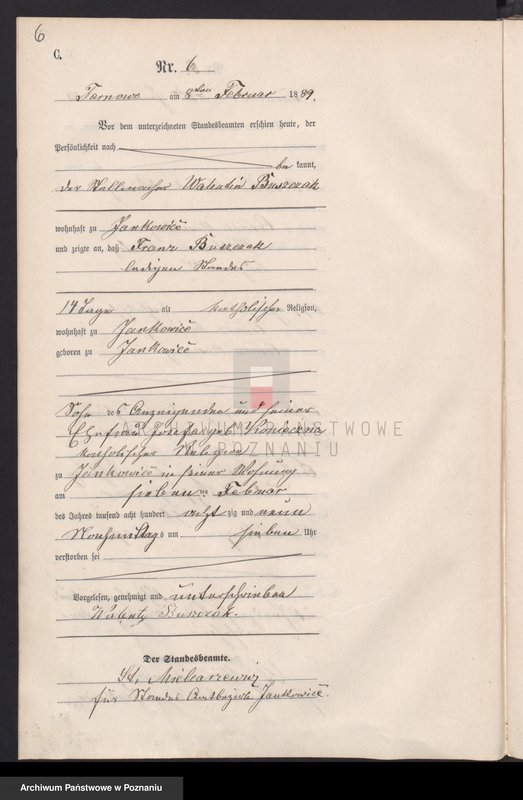 6
C.
Nr. 6
Tarnowo am 8ten Februar 1889.
Vor dem unterzeichneten Standesbeamten erschien heute, der
Persönlichkeit nach
be kannt,
der Stellmacher Valentin Buszczak
wohnhaft zu Jankowice
und zeigte an, daß Franz Buszczak
ledigen Standes
14 Tage alt katholischer Religion,
wohnhaft zu Jankowice
geboren zu Jankowice
Sohn des Anzeigenden und seiner
Ehefrau Josefa geb.
katholischer Religion
zu Jankowice in seiner Wohnung
am sieben ten Februar
des Jahres tausend acht hundert acht zig und neun
Nachmittags um sieben Uhr
verstorben sei
Vorgelesen, genehmigt und unterschrieben
Walenty Buszczak.
Der Standesbeamte.
St. Mielcarzewicz
für Standes Amtbezirk Jankowice.
ARCHIWUM PAŃSTWOWE
W POZNANIU
Archiwum Państwowe w Poznaniu